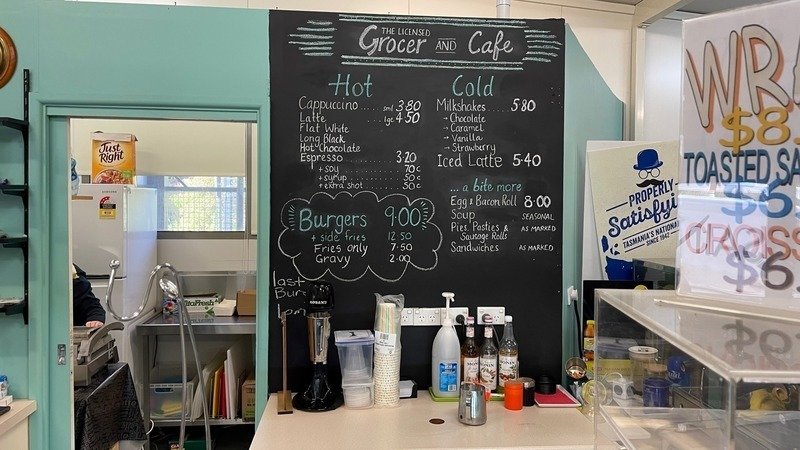 THE LICENSED
Grocer AND Cafe
Hot
Cappuccino .... sml 3.80
Latte .... lge 4.50
Flat White
Long Black
Hot Chocolate
Espresso 3.20
+ soy ..... 70c
+ syrup ..... 50c
+ extra shot ..... 50c
Cold
Milkshakes .... 5.80
→ Chocolate
→ Caramel
→ Vanilla
→ Strawberry
Iced Latte 5.40
... a bite more
Egg & Bacon Roll 8.00
Soup SEASONAL
Pies, Pasties & AS MARKED
Sausage Rolls
Sandwiches AS MARKED
Burgers 9.00
+ side fries 12.50
Fries only 7.50
Gravy 2.00
last
Just Right
PROPERLY
Satisfyi
TASMANIA'S NATIONAL
SINCE 1942
WRA
$8
TOASTED SA
CROISS
$6